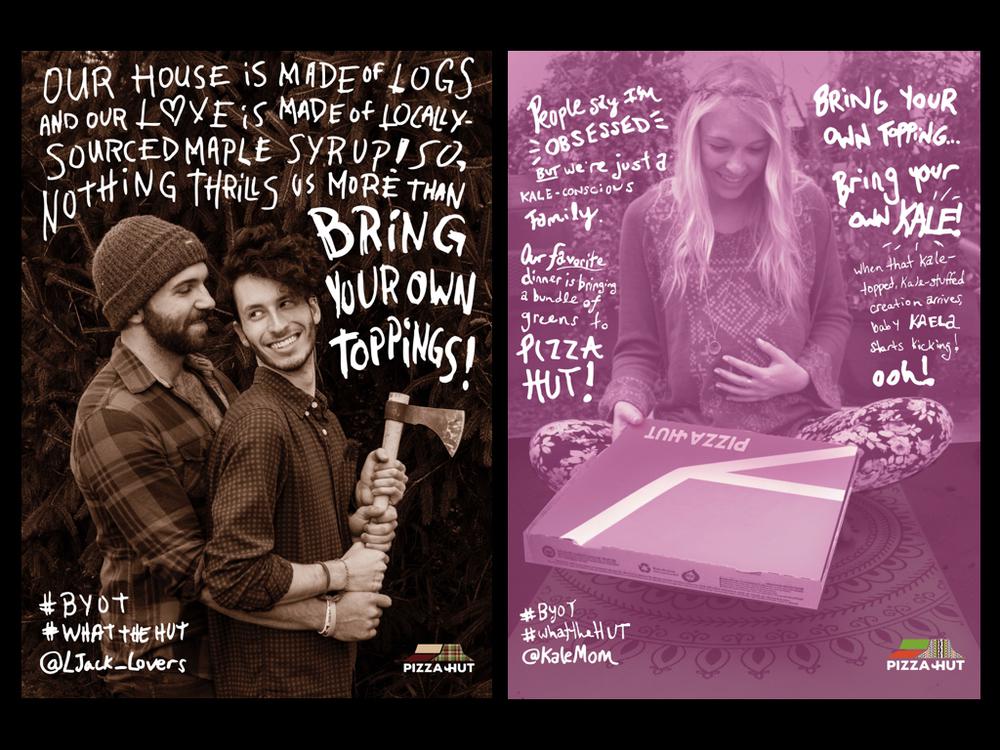 OUR HOUSE iS MADE OF LOGS
AND OUR L♡VE iS MADE OF LOCALLY-
SOURCED MAPLE SYRUP! SO,
NOTHiNG THRiLLS US MORE THAN
BRiNG
YOUR OWN
TOPPiNGS!
#BYOT
#WHATtHEHUT
@LJack_Lovers
PIZZA HUT
People say I'm
OBSESSED
BUT we're just a
KALE-CONSCIOUS
Family.
Our favorite
dinner is bringing
a bundle of
greens to
PIZZA
HUT!
BRiNG YOUR
OWN TOPPiNG...
Bring your
own KALE!
when that kale-
topped, kale-stuffed
creation arrives,
baby KAELA
starts kicking!
ooh!
PIZZA HUT
#ByOT
#whattheHUT
@KaleMom
PIZZA HUT